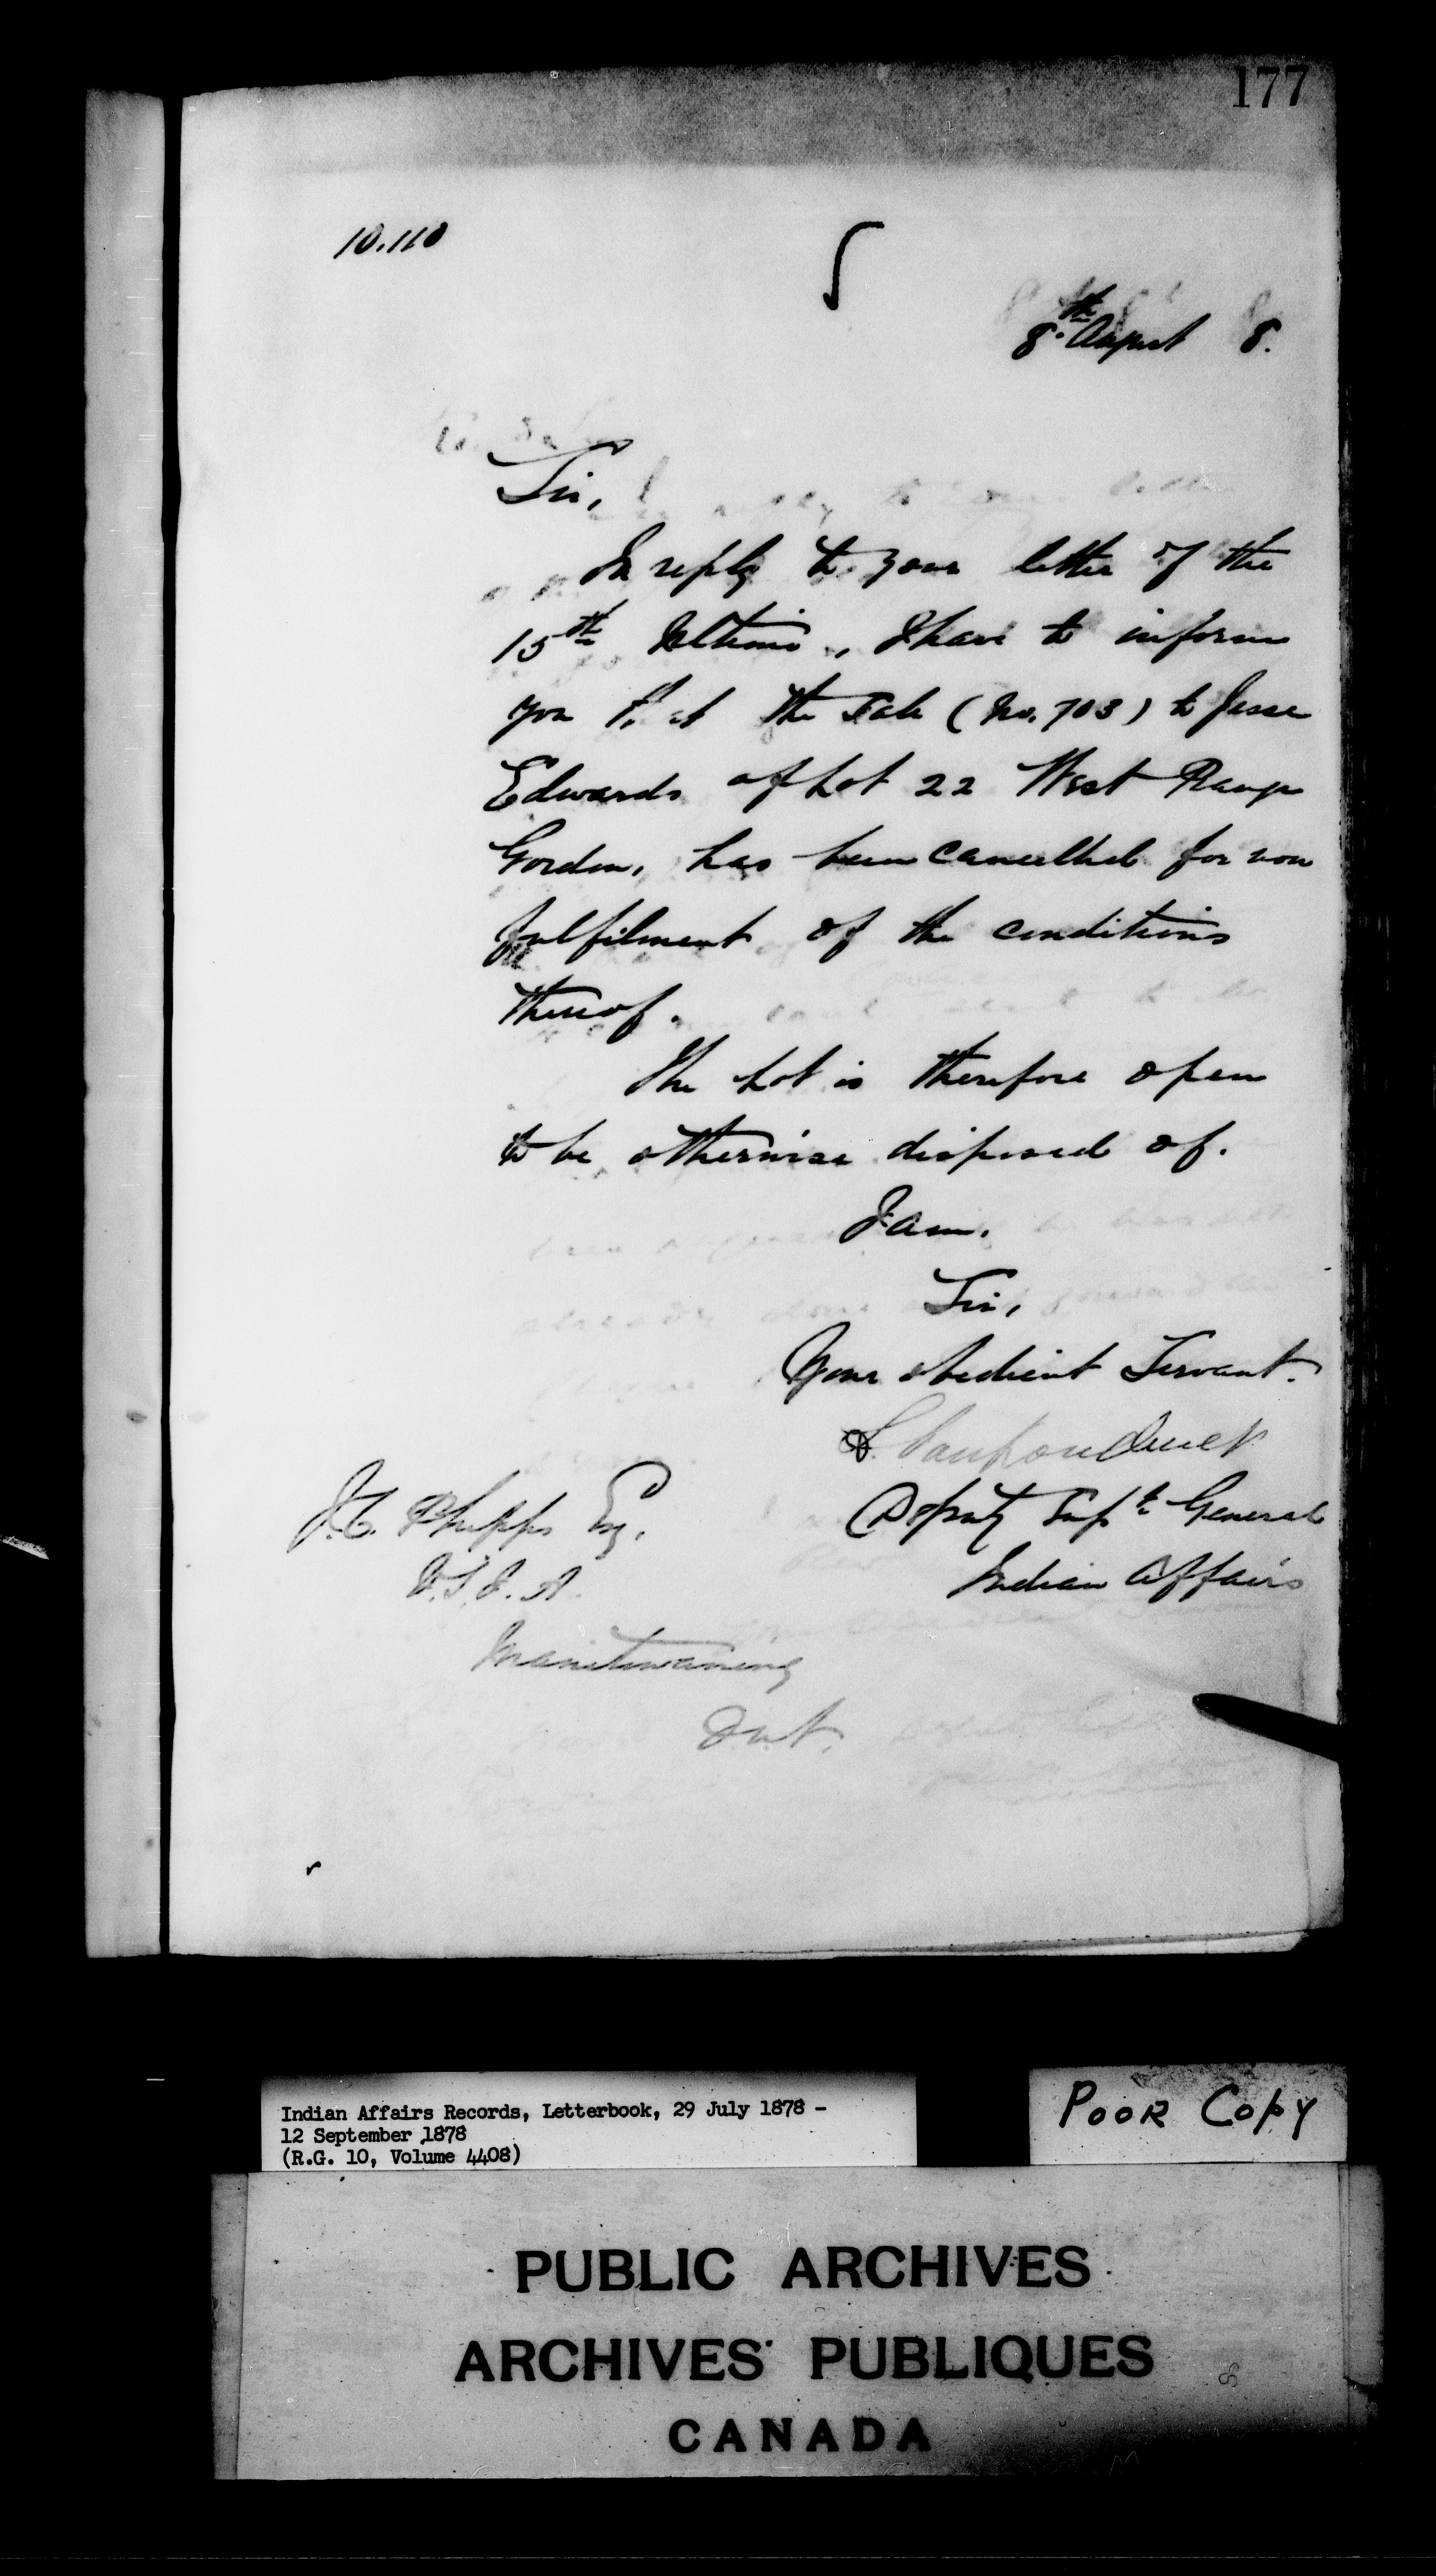 177
10.110
8th August 8.
Sir,
In reply to your letter of the
15th Ultimo, I have to inform
you that the Sale (No. 703) to Jesse
Edwards of Lot 22 West Range
Gordon, has been cancelled for non
fulfilment of the conditions
thereof.
The Lot is therefore open
to be otherwise disposed of.
I am,
Sir,
Your obedient Servant.
L. Vankoughnet
Deputy Supt. General
Indian Affairs
J.C. Phipps Esq.
V.S.I.A.
Manitowaning
Ont.
Indian Affairs Records, Letterbook, 29 July 1878 -
12 September 1878
(R.G. 10, Volume 4408)
POOR COPY
PUBLIC ARCHIVES
ARCHIVES PUBLIQUES
CANADA